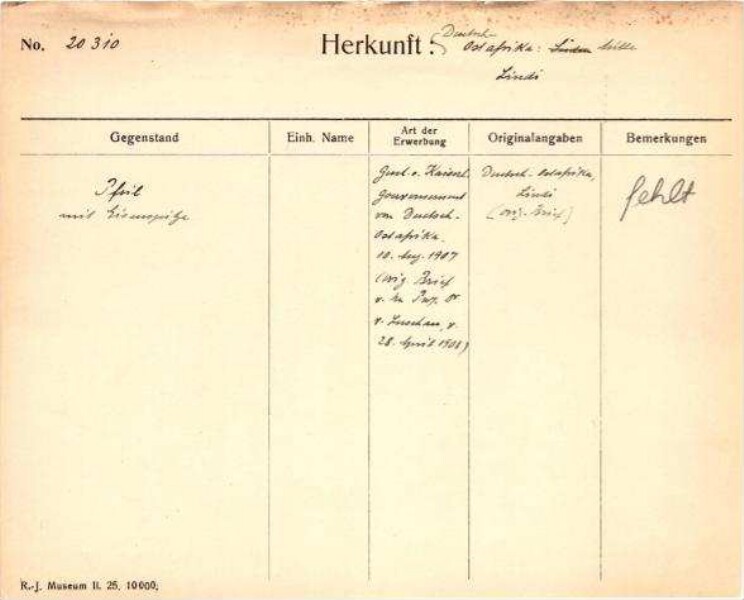 No. 20310
Herkunft: Deutsch-
Ostafrika:
Lindi
Gegenstand
Einh. Name
Art der
Erwerbung
Originalangaben
Bemerkungen
Pfeil
mit Eisenspitze
Gesch. v. Kaiserl.
Gouvernement
von Deutsch-
Ostafrika.
10. Aug. 1907
(orig. Brief
v. Luschan, v.
28. April 1908)
Deutsch-Ostafrika,
Lindi
(orig. Brief)
fehlt
R.-J. Museum II. 25. 10000;